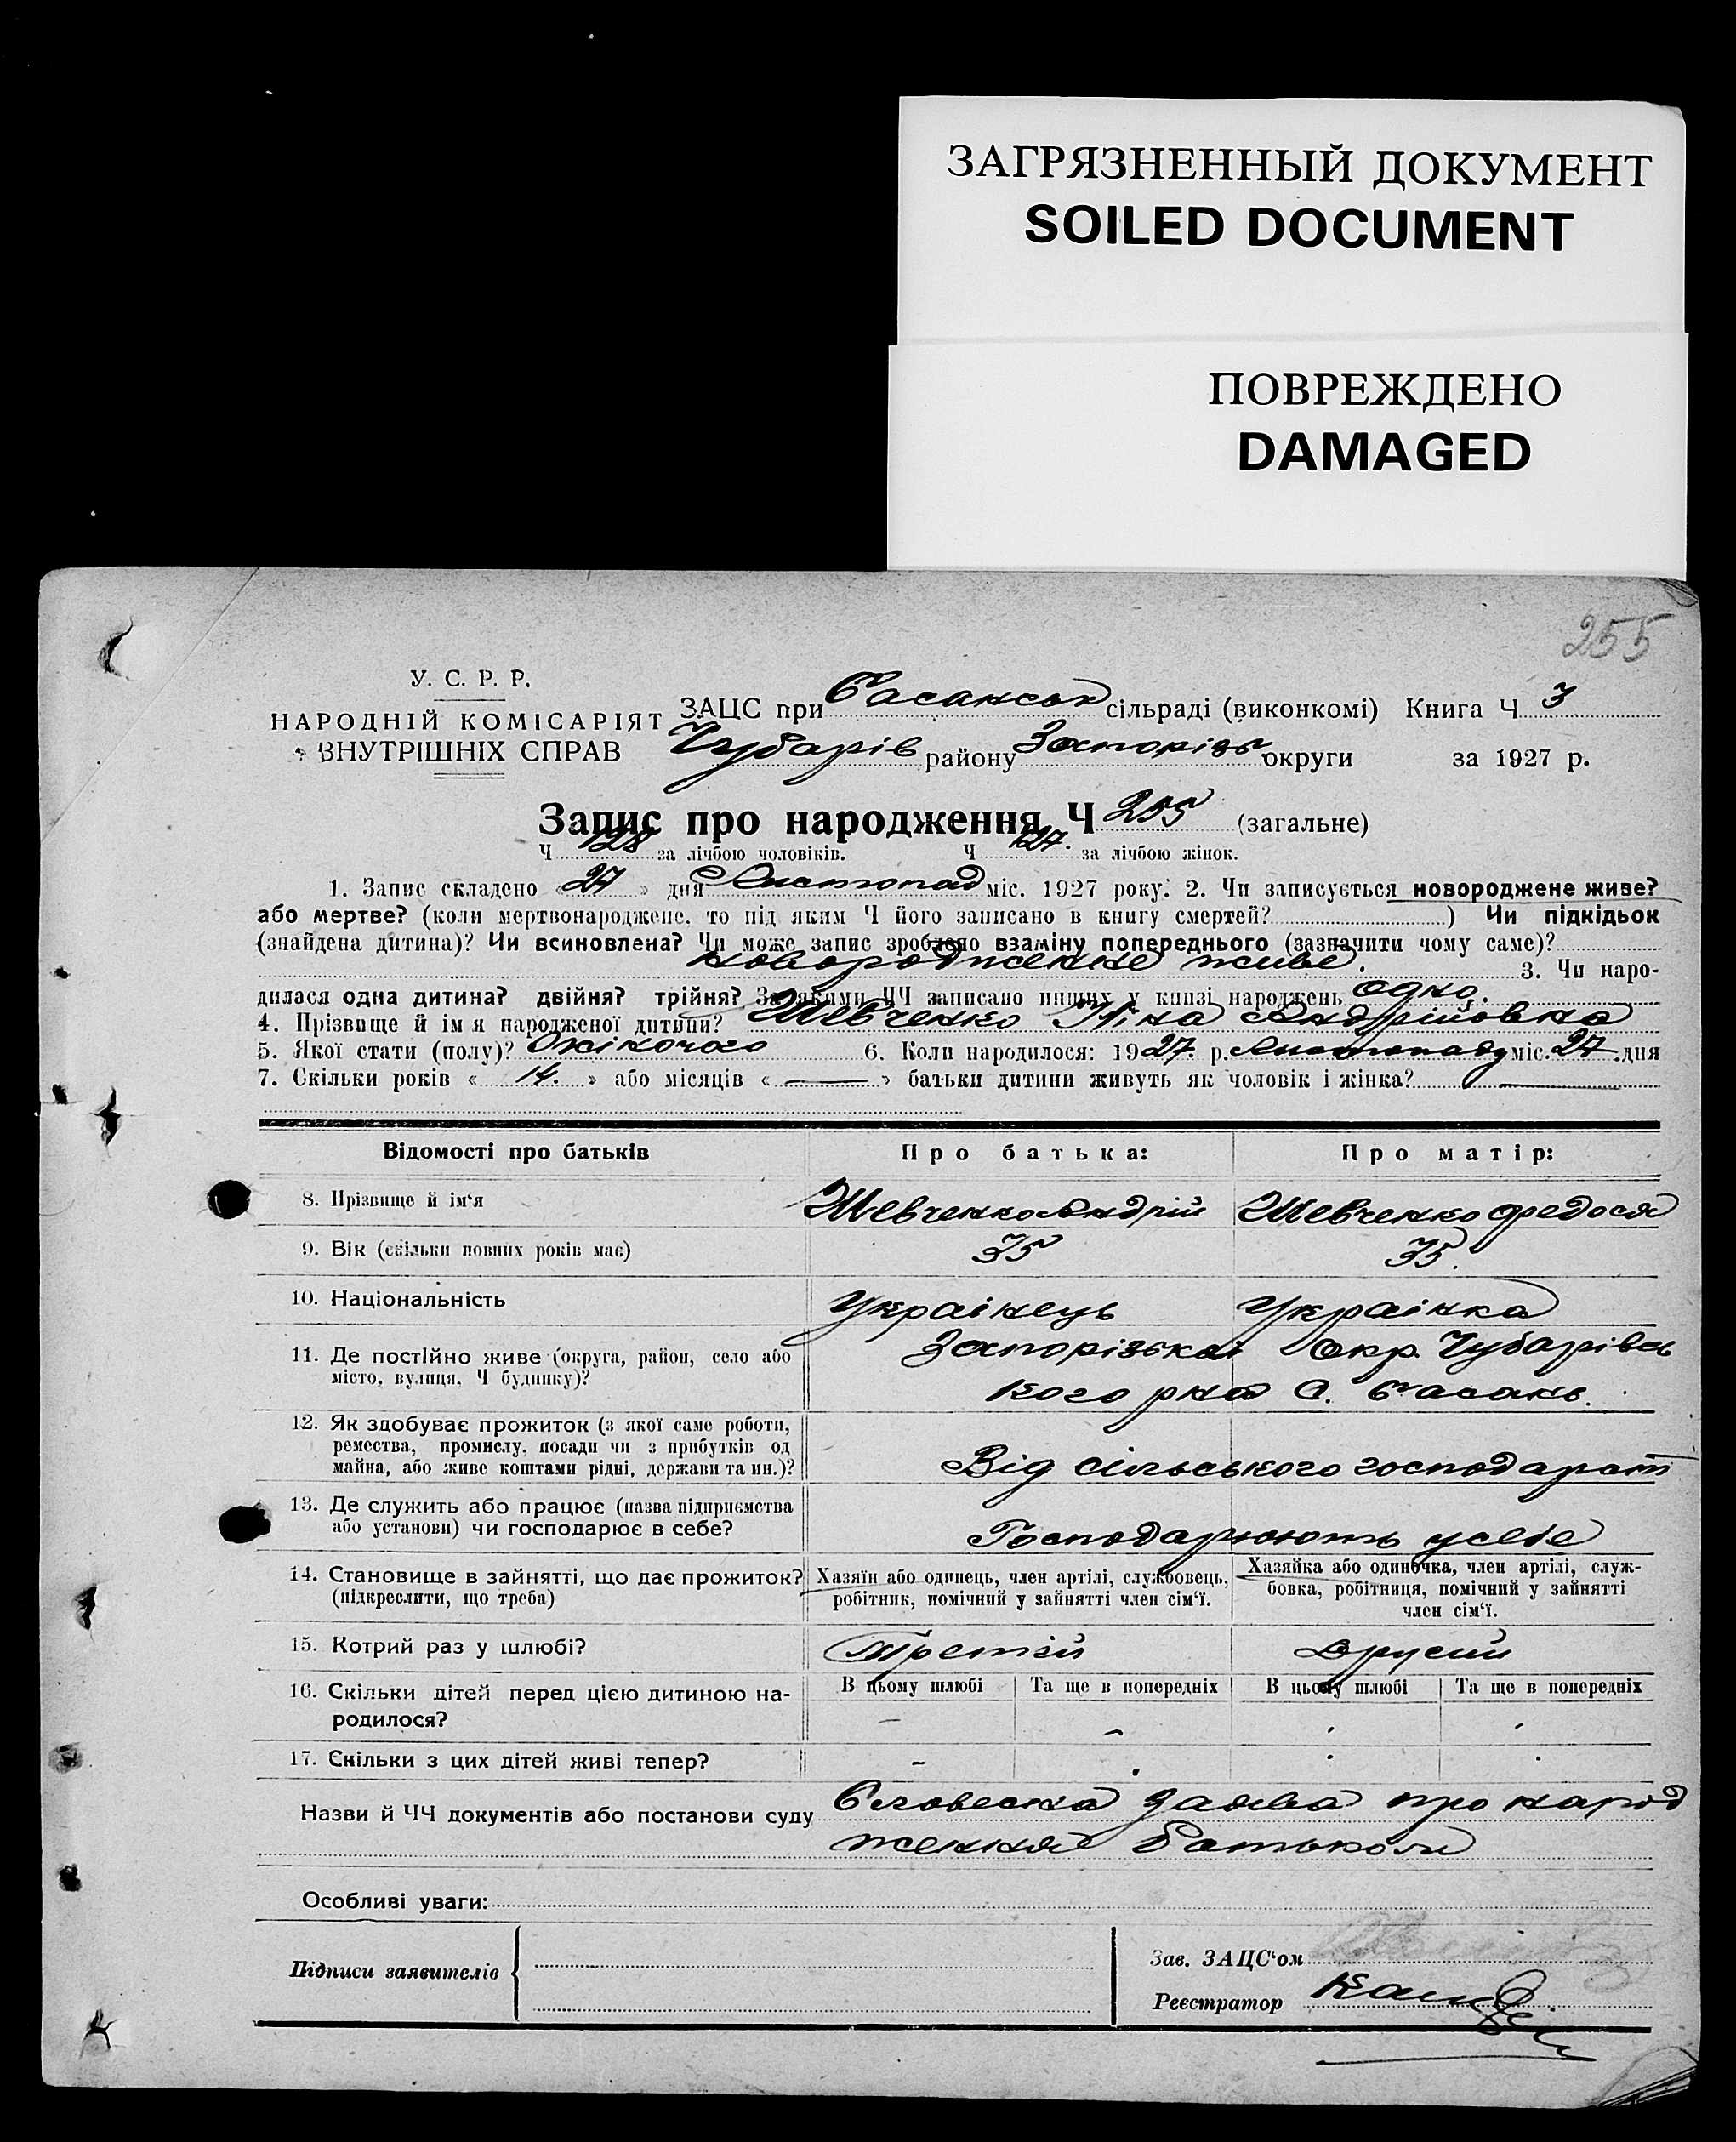 ЗАГРЯЗНЕННЫЙ ДОКУМЕНТ
SOILED DOCUMENT
ПОВРЕЖДЕНО
DAMAGED
255
У. С. Р. Р.
НАРОДНІЙ КОМІСАРІЯТ
ВНУТРІШНІХ СПРАВ
ЗАЦС при Басанськ сільраді (виконкомі) Книга Ч 3
Чубарів району Запоріз округи за 1927 р.
Запис про народження Ч 255 (загальне)
Ч 128 за лічбою чоловіків. Ч 127. за лічбою жінок.
1. Запис складено «27» дня Листопад міс. 1927 року. 2. Чи записується новороджене живе?
або мертве? (коли мертвонароджене, то під яким Ч його записано в книгу смертей? ) Чи підкідьок
(знайдена дитина)? Чи всиновлена? Чи може запис зроблено взаміну попереднього (зазначити чому саме)?
новородженне живе. 3. Чи наро-
дилася одна дитина? двійня? трійня? За якими ЧЧ записано инших у книзі народжень одно.
4. Прізвище й ім я народженої дитини? Шевченко Ніна Андрійовна
5. Якої стати (полу)? Жіночого 6. Коли народилося: 1927. р. Листопаду міс. 27. дня
7. Скільки років «14.» або місяців «—» батьки дитини живуть як чоловік і жінка? —
Відомості про батьків Про батька: Про матір:
8. Прізвище й ім‘я Шевченко Андрій Шевченко Федося
9. Вік (скільки повних років має) 35 35.
10. Національність Українець Українка
11. Де постійно живе (округа, район, село або Запорізькоі Окр. Чубарівсь
місто, вулиця, Ч будинку)? кого рна С. Басань.
12. Як здобуває прожиток (з якої саме роботи,
ремества, промислу, посади чи з прибутків од
майна, або живе коштами рідні, держави та ин.)? Від сільського господарст
13. Де служить або працює (назва підприємства
або установи) чи господарює в себе? Господарюють усебе
14. Становище в зайнятті, що дає прожиток? Хазяїн або одинець, член артілі, службовець, Хазяйка або одиночка, член артілі, служ-
(підкреслити, що треба) робітник, помічний у зайнятті член сім‘ї. бовка, робітниця, помічний у зайнятті
член сім‘ї.
15. Котрий раз у шлюбі? Третій Другий
16. Скільки дітей перед цією дитиною на- В цьому шлюбі Та ще в попередніх В цьому шлюбі Та ще в попередніх
родилося? – –
17. Скільки з цих дітей живі тепер? –
Назви й ЧЧ документів або постанови суду Словесна заява про народ
ження батьком
Особливі уваги:
Підписи заявителів
Зав. ЗАЦС‘ом
Реєстратор